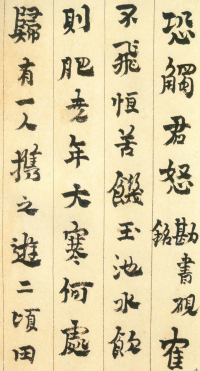 恐觸君怒 勘書硯銘 寉
不飛恒苦饑玉池水飲
則肥耆年大寒何處
歸有一人攜之遊二頃田